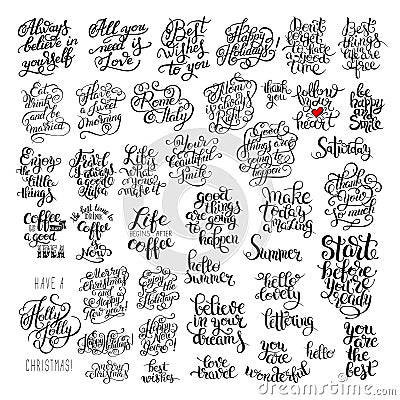 Always
believe in
yourself
All you
need is
Love
Best
wishes
to you
Happy
Holidays!
Don't
forget
to have
a good
time
Best
things
in life
are
free
Eat
drink
and be
married
Have a
Sweet
morning
Rome
Italy
Mom
is always
Right
thank
you
follow
your
heart
be
happy
and
smile
Enjoy
the
little
things
Travel
is always
a good
idea
Life
is what
you
make it
Your
beautiful
smile
Good
things
are going
to happen
Saturday
Thank
you
so much
Coffee
is always
a good
IDEA
the best time
to DRINK
Coffee
is
Now
Life
BEGINS AFTER
coffee
good
things
are going
to happen
make
today
amazing
Summer
Start
before
you're
ready
HAVE A
Holly
Jolly
CHRISTMAS!
Merry
Christmas
and
Happy
New
year!
Enjoy
the
Holiday
hello
Summer
hello
lovely
believe
in your
dreams
lettering
you
are
the
best
Happy
New
Year!
merry
christmas
best
wishes
love
travel
you
are
wonderful
hello